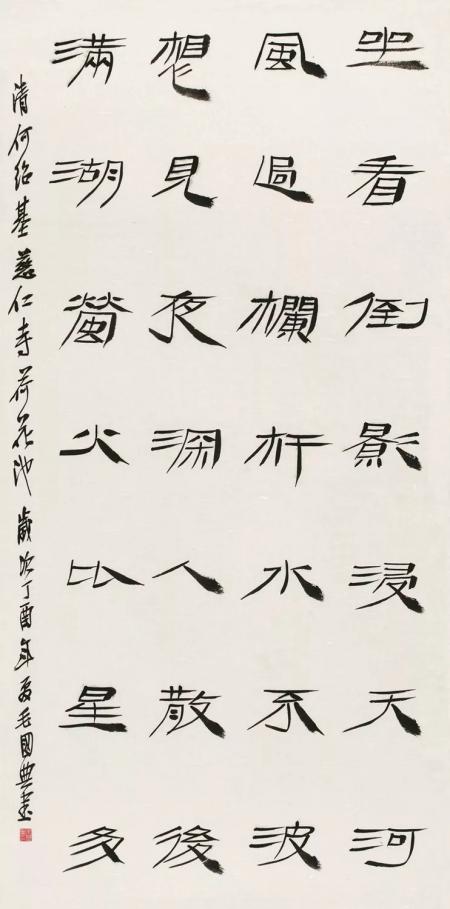 坐看倒影浸天河
風過欄杆水不波
想見夜深人散後
滿湖螢火比星多
清何紹基慈仁寺荷花池 歲次丁酉年夏毛國典書